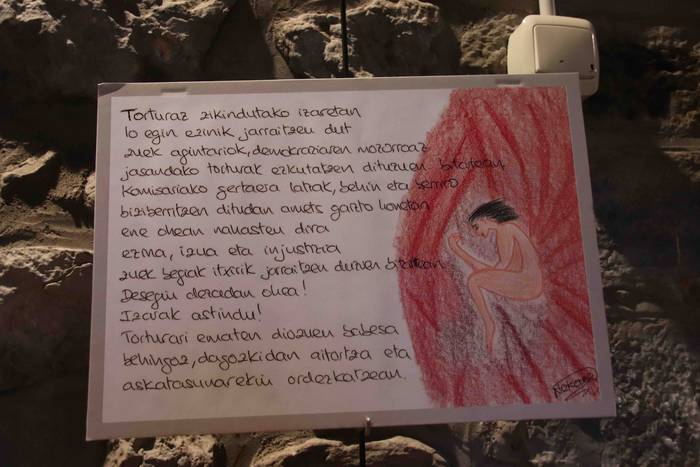 Torturaz zikindutako izaretan
lo egin ezinik jarraitzen dut
zuek agintariok, demokraziaren mozorroaz
jasandako torturak ezkutatzen dituzuen bitartean.
Komisariako gertaera latzak, behin eta berriro
biziberritzen ditudan amets gaizto honetan
ene ohean nahasten dira
ezina, izua eta injustizia
zuek begiak itxirik jarraitzen duzuen bitartean
Desegin dezadan ohea!
Izarak astindu!
Torturari ematen diozuen babesa
behingoz, dagozkidan aitortza eta
askatasunarekin ordezkatzean.